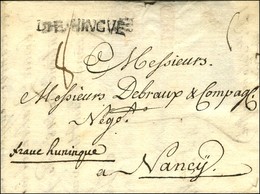 DHUNINGUE
8
Messieurs.
Messieurs Debraux & Compag.
Négo.
franc huningue
a Nancÿ